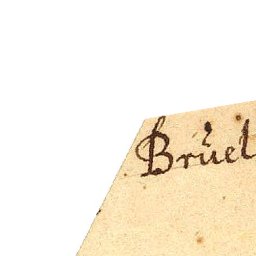 Brůel